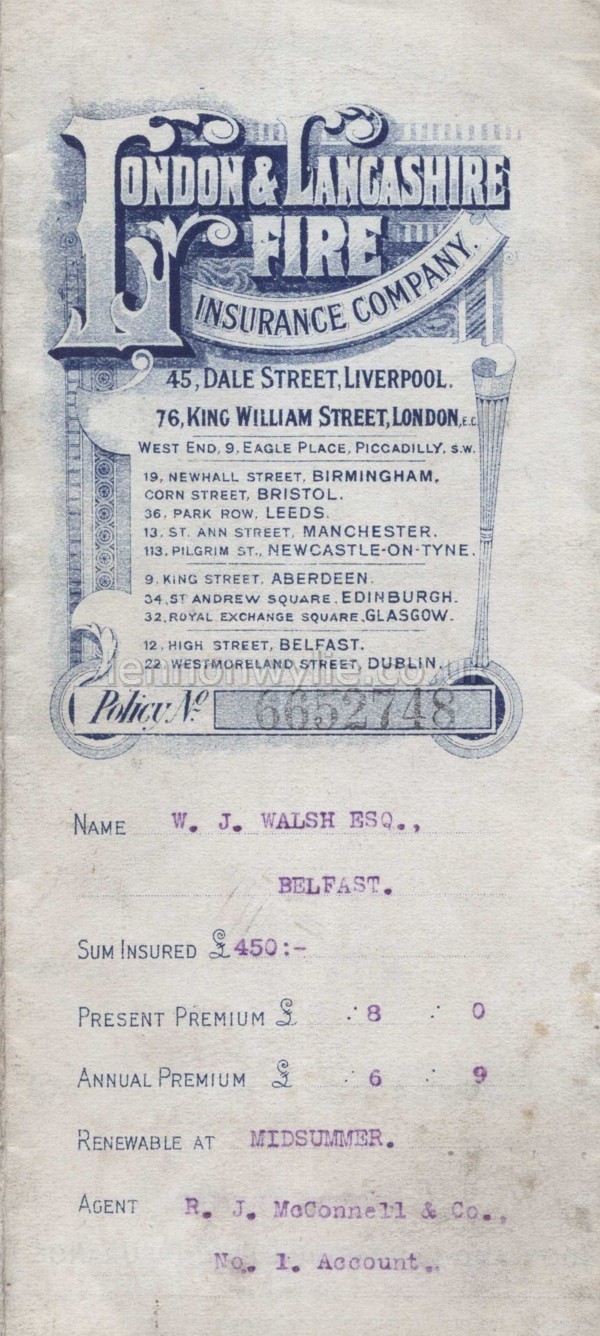 LONDON & LANCASHIRE
FIRE
INSURANCE COMPANY.
45, DALE STREET, LIVERPOOL.
76, KING WILLIAM STREET, LONDON, E.C.
WEST END, 9, EAGLE PLACE, PICCADILLY, S.W.
19, NEWHALL STREET, BIRMINGHAM,
CORN STREET, BRISTOL.
36, PARK ROW, LEEDS.
13, ST. ANN STREET, MANCHESTER.
113, PILGRIM ST., NEWCASTLE-ON-TYNE.
9, KING STREET, ABERDEEN.
34, ST ANDREW SQUARE, EDINBURGH.
32, ROYAL EXCHANGE SQUARE, GLASGOW.
12, HIGH STREET, BELFAST.
22 WESTMORELAND STREET, DUBLIN.
lennonwylie.co.uk
Policy No. 6652748
NAME W. J. WALSH ESQ.,
BELFAST.
SUM INSURED £450:-
PRESENT PREMIUM £ : 8 : 0
ANNUAL PREMIUM £ : 6 : 9
RENEWABLE AT MIDSUMMER.
AGENT R. J. McConnell & Co.,
No. 1. Account.